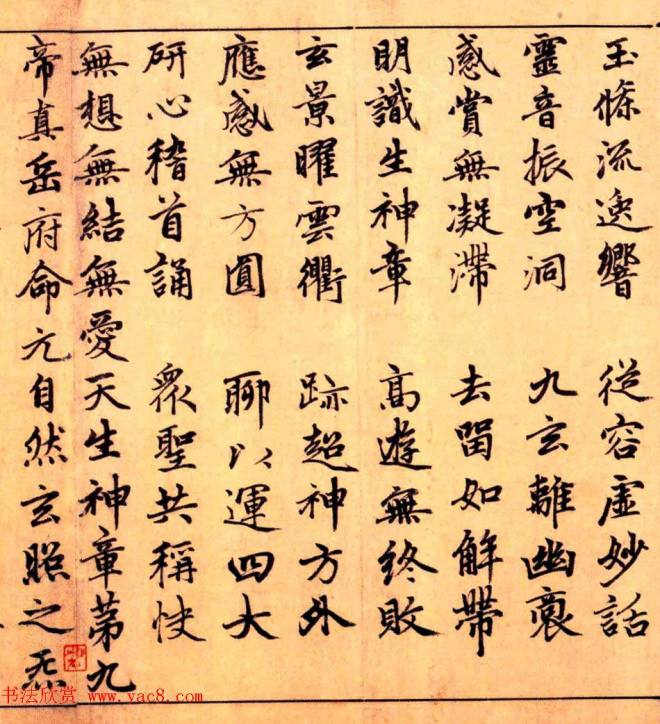 玉條流逸響 從容虛妙話
靈音振空洞 九玄離幽裔
感賞無凝滯 去留如解帶
明識生神章 高遊無終敗
玄景曜雲衢 跡超神方外
應感無方圓 聊以運四大
研心稽首誦 眾聖共稱快
無想無結無愛天生神章苐九
帝真岳府命元自然玄照之炁
书法欣赏 www.yac8.com